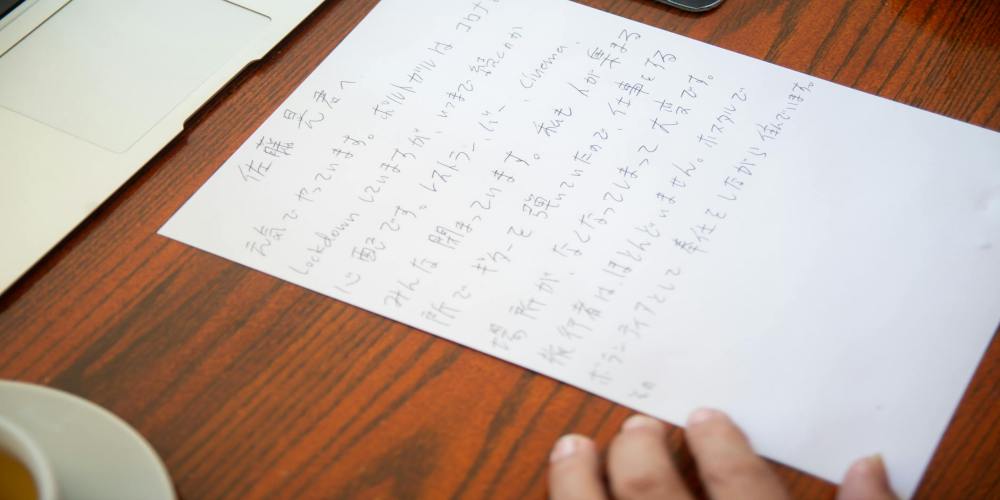 佐藤 晃君へ
元気でやっています。ポルトガルは コロナ
Lockdownしていますが、いつまで続くのか
心配です。レストラン、バー、Cinema、
みんな閉まっています。私も人が集まる
所でギターを弾いていたので、仕事をする
場所が、なくなってしまって大変です。
旅行者は、ほとんどいません。ホステルで
ボランティアとして奉仕をしながら住んでいます。
その